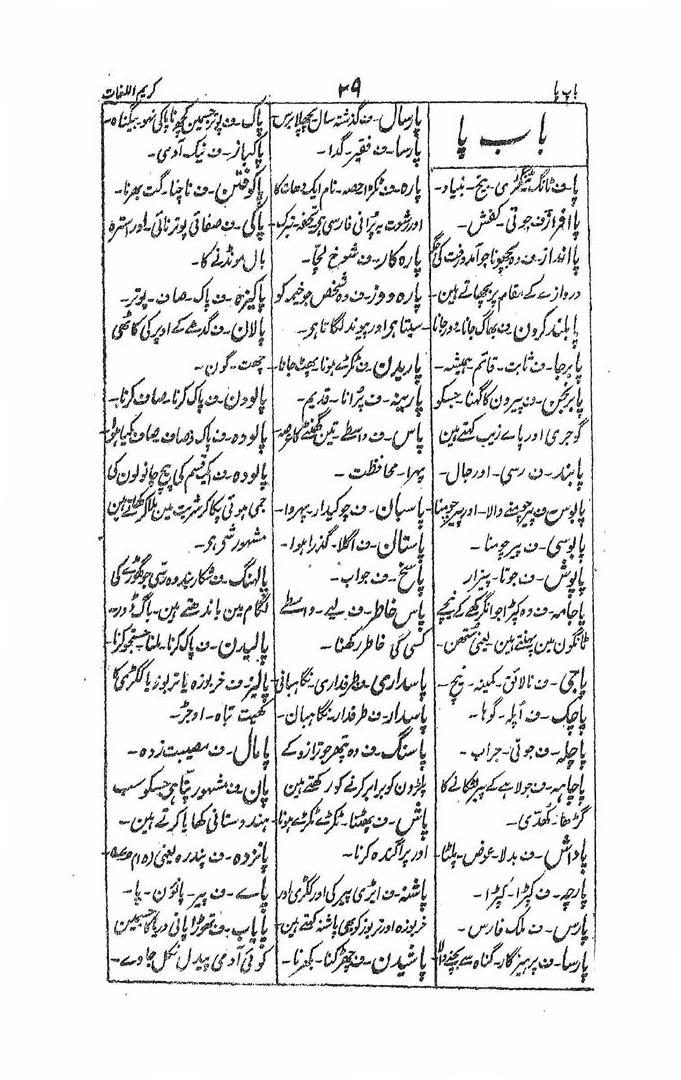 باب پا
۲۹
کریم اللغات
باب پا
پا۔ ف ٹانگ ٹنگڑی۔ بیخ۔ بنیاد۔
پا افزار۔ ف جوتی۔ کفش۔
پا انداز۔ ف وہ بچھونا جو آمد و رفت کی جگہ
دروازے کے مقام پر بچھاتے ہین۔
پا بلند کردن۔ ف بھاگ جانا۔ دور جانا
پابرجا۔ ف ثابت۔ قائم ہمیشہ۔
پابرنجن۔ ف پیرون کا گہنا۔ جسکو
گوجری اور پاے زیب کہتے ہین
پابند۔ ف رسی۔ اور جال۔
پابوس۔ ف پیر چومنے والا۔ اور پیر چومنا۔
پابوسی۔ ف پیر چومنا۔
پاپوش۔ ف جوتا۔ پیزار
پاجامہ۔ ف وہ کپڑا جو انگرکھے کے نیچے
ٹانگون مین پہنتے ہین یعنی سُتھن۔
پاجی۔ ف نالائق۔ کمینہ۔ نیچ۔
پاچک۔ ف اُپلہ۔ گوہا۔
پاچلہ۔ ف جوتی۔ جراب۔
پاچاہہ۔ ف جولاہے کے پیر لٹکانے کا
گڑھا۔ کھُدّی۔
پاداش۔ ف بدلا۔ عوض۔ پلٹا۔
پارچہ۔ ف کپڑا۔ ٹکڑا۔
پارس۔ ف ملک فارس۔
پارسا۔ ف پرہیزگار۔ گناہ سے بچنے والا
پارسال۔ ف گذشتہ سال پچھلا برس
پارسا۔ ف فقیر۔ گدا۔
پارہ۔ ف ٹکڑا حصہ۔ نام ایک دھات کا
اور رشوت یہ پُرانی فارسی ہی تحفہ تبرک
پارہ کار۔ ف شوخ لُچّا۔
پارہ دوز۔ ف وہ شخص جو خیمہ کو
سیتا ہو اور پیوند لگاتا ہو۔
پاریدن۔ ف ٹکڑے ہونا پھٹ جانا۔
پارینہ۔ ف پُرانا۔ قدیم۔
پاس۔ ف واسطے تین گھنٹے کا عرصہ
پہرا۔ محافظت۔
پاسبان۔ ف چوکیدار۔ پہروا۔
پاستان۔ ف اگلا۔ گذرا ہوا۔
پاسخ۔ ف جواب۔
پاس خاطر۔ ف لیے۔ واسطے
کسی کی خاطر رکھنا۔
پاسداری۔ ف طرفداری۔ نگاہبانی
پاسدار۔ ف طرفدار۔ نگاہبان۔
پاسنگ۔ ف وہ پتھر جو ترازو کے
پلڑون کو برابر کرنے کو رکھتے ہین
پاش۔ ف پھٹنا۔ ٹکڑے ٹکڑے ہونا
اور پراگندہ کرنا۔
پاشنہ۔ ف ایڑی پیر کی اور ککڑی اور
خربوزہ اور تربوز کو بھی پاشنہ کہتے ہین۔
پاشیدن۔ ف چھڑکنا۔ بکھرنا۔
پاک۔ ف پوتر جسمین کچھ ناپاکی نہو۔ بیگناہ۔
پاکباز۔ ف نیک آدمی۔
پاکوفتن۔ ف ناچنا۔ گت بھرنا۔
پاکی۔ ف صفائی پوترتائی۔ اور استرہ
بال مونڈنے کا۔
پاکیزہ۔ ف پاک۔ صاف۔ پوتر۔
پالان۔ ف گدھے کے اوپر کی کاٹھی
چھت۔ گون۔
پالودن۔ ف پاک کرنا۔ صاف کرنا۔
پالودہ۔ ف پاک و صاف صاف کیا ہوا
پالودہ۔ ف ایک قسم کی پیچ چانولون کی
جمی ہوتی پکا کر شربت مین ملا کر کھاتے ہین
مشہور شی ہی۔
پالہنگ۔ ف شکار بند وہ رسّی جو گھوڑے کی
لگام مین باندھتے ہین۔ باگ ڈور۔
پالیدن۔ ف پاک کرنا۔ لمنا جستجو کرنا
پالیز۔ ف خربوزہ یا تربوز یا ککڑی کا
کھیت تباہ۔ اوجڑ۔
پامال۔ ف مصیبت زدہ۔
پان۔ ف مشہور پتا ہی جسکو سب
ہندوستانی کھایا کرتے ہین۔
پانزدہ۔ ف پندرہ یعنی (۱۵)
پاے۔ ف پیر۔ پانوٗن۔ پا۔
پایاب۔ ف تھوڑا پانی دریا کا جسمین
کوئی آدمی پیدل نکل جاوے۔